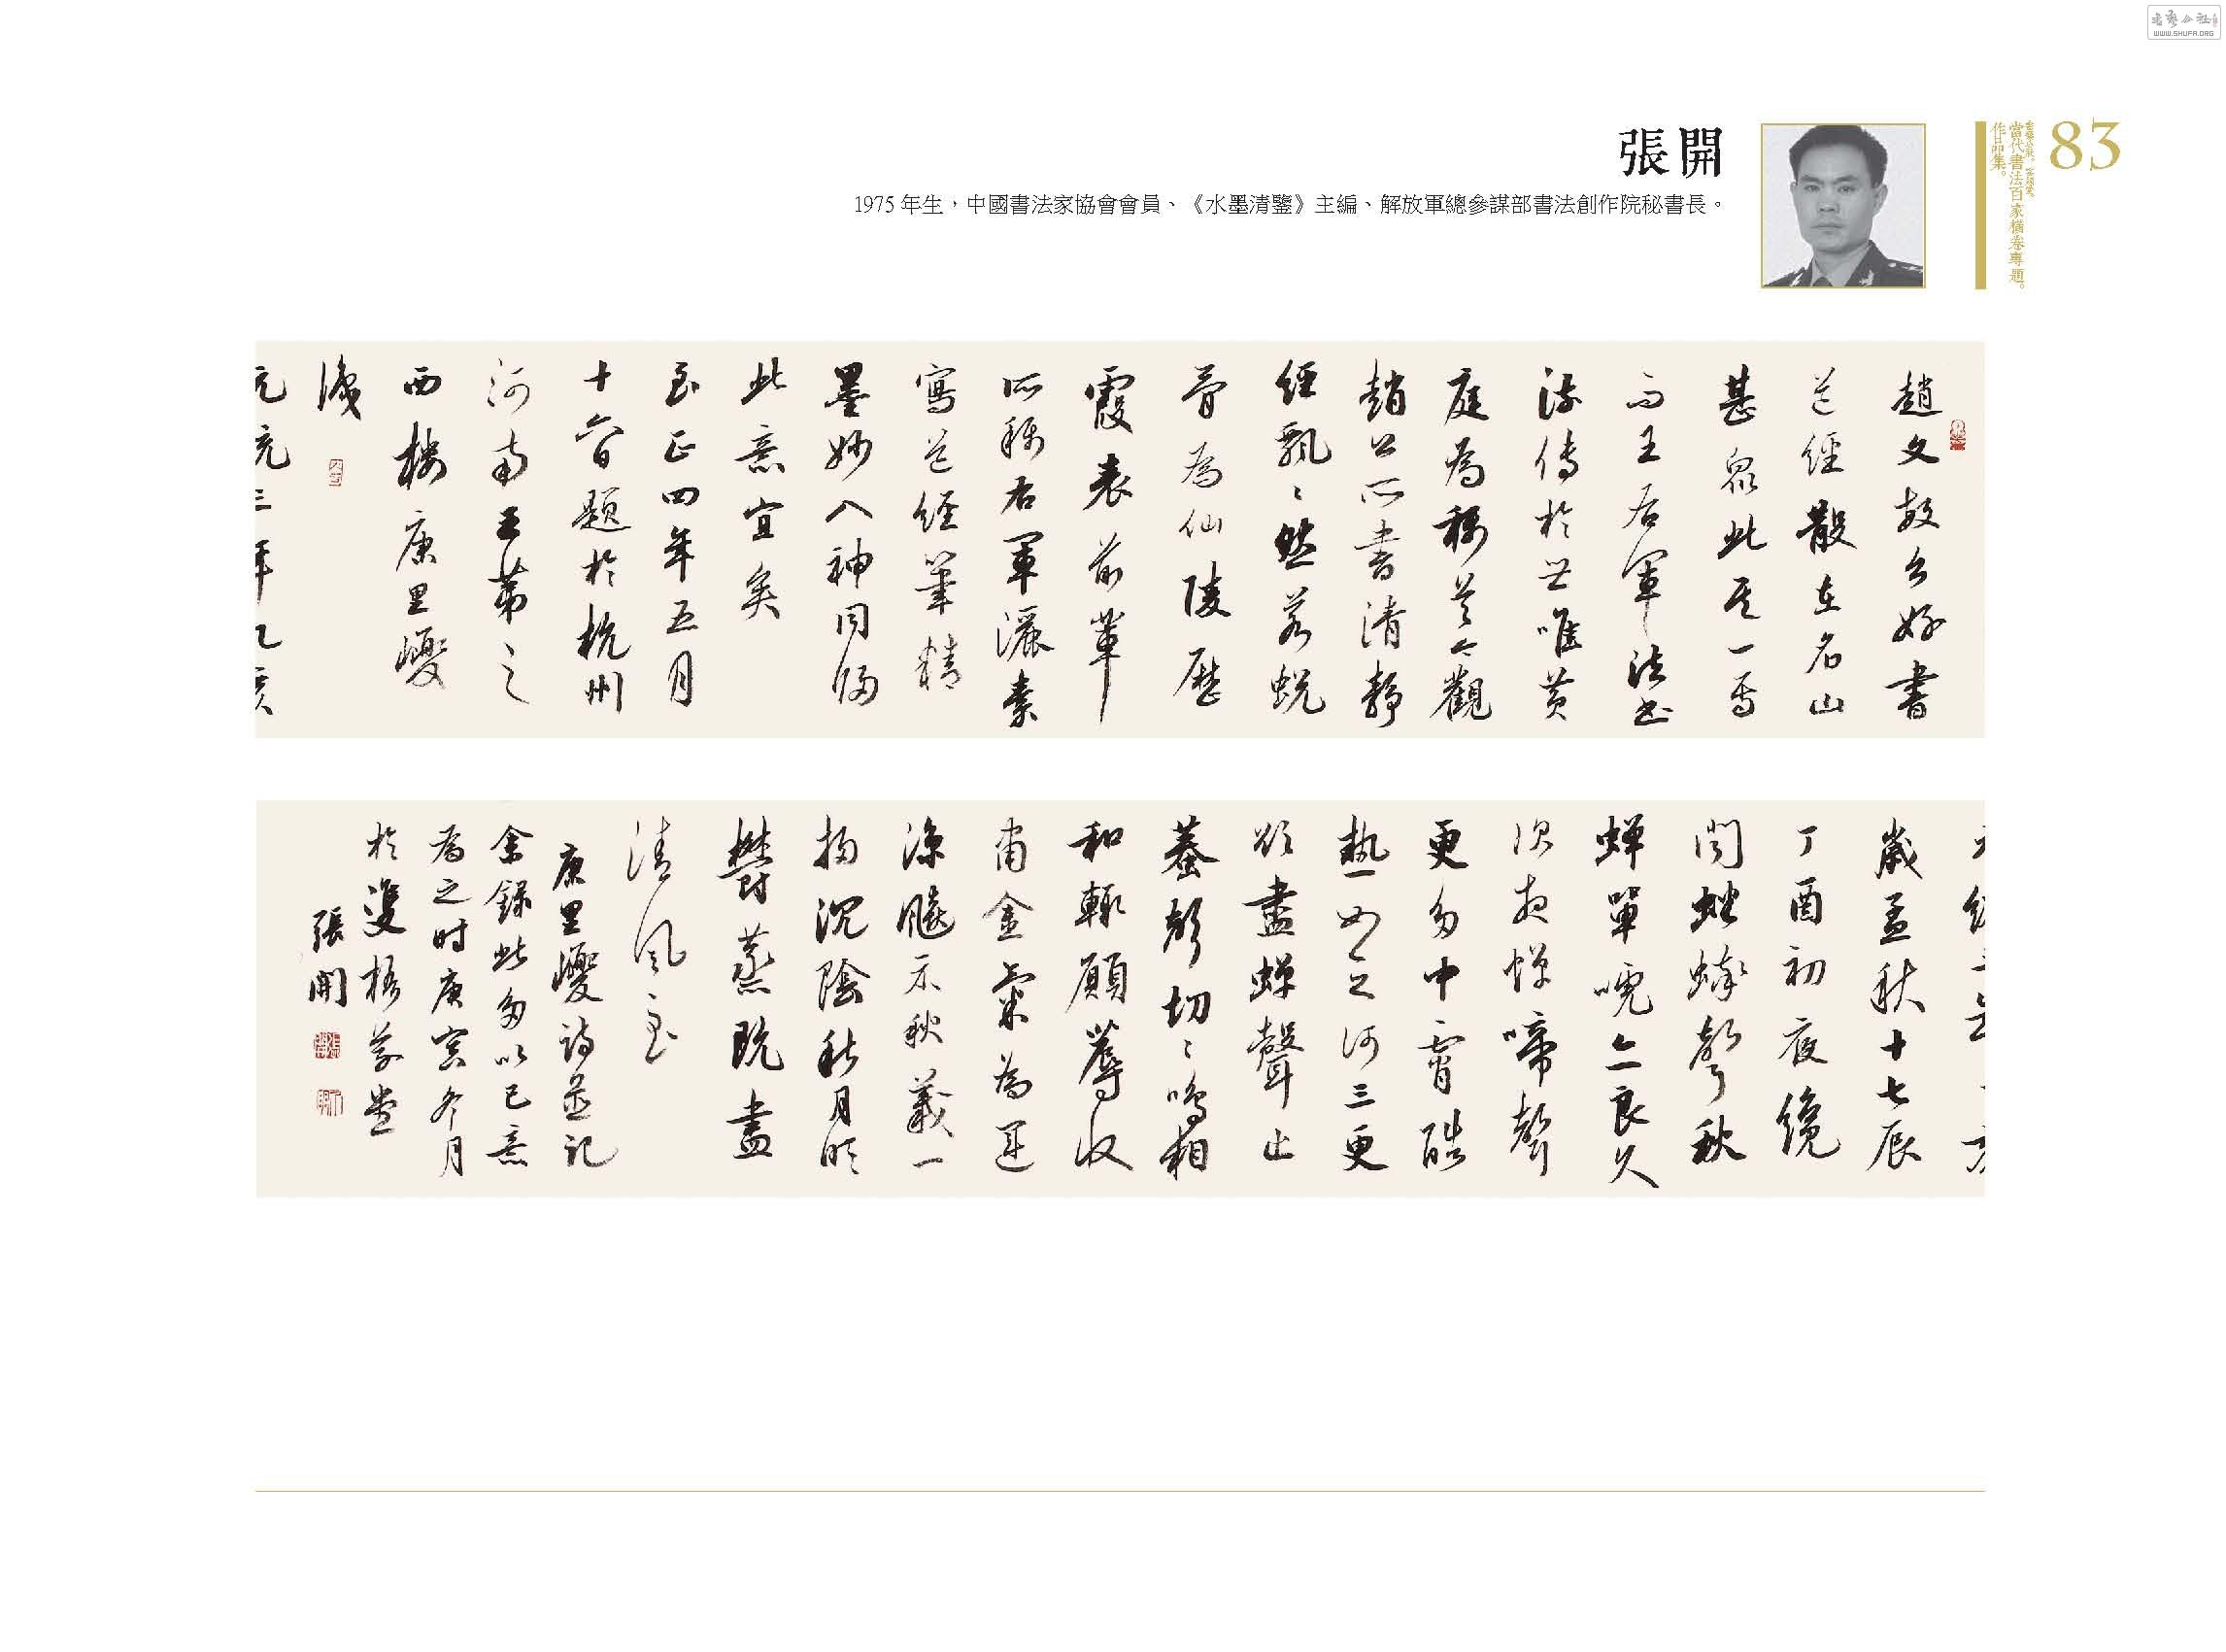 張開
1975 年生，中國書法家協會會員、《水墨清鑒》主編、解放軍總參謀部書法創作院秘書長。
83
當代書法百家橫卷專題。
作品集。
趙文敏公好書
道經散在名山
甚眾此其一焉
而王右軍法書
流傳於世唯黃
庭為稱首今觀
趙公所書清靜
經飄〻然若蛻
骨為仙陵歷
霞表前輩
所稱右軍灑素
寫道經筆精
墨妙入神同歸
此意宜矣
至正四年五月
十六日題於杭州
河南王第之
西樓康里巎
識
歲孟秋十七辰
丁酉初夜纔
聞蟋蟀聲秋
蟬單 良久
次夜蟬啼聲
更 中宵酷
熱 如之何三更
欲盡蟬聲止
蛬聲切〻鳴相
和輒顧蓐收
甫金氣為運
涼颸示秋義一
掃沉陰秋月明
鬱蒸既盡
清風至
康里巎詩並記
余錄此多以己意
為之时庚寅冬月
於雙梧草堂
張開
WWW.SHUFA.ORG